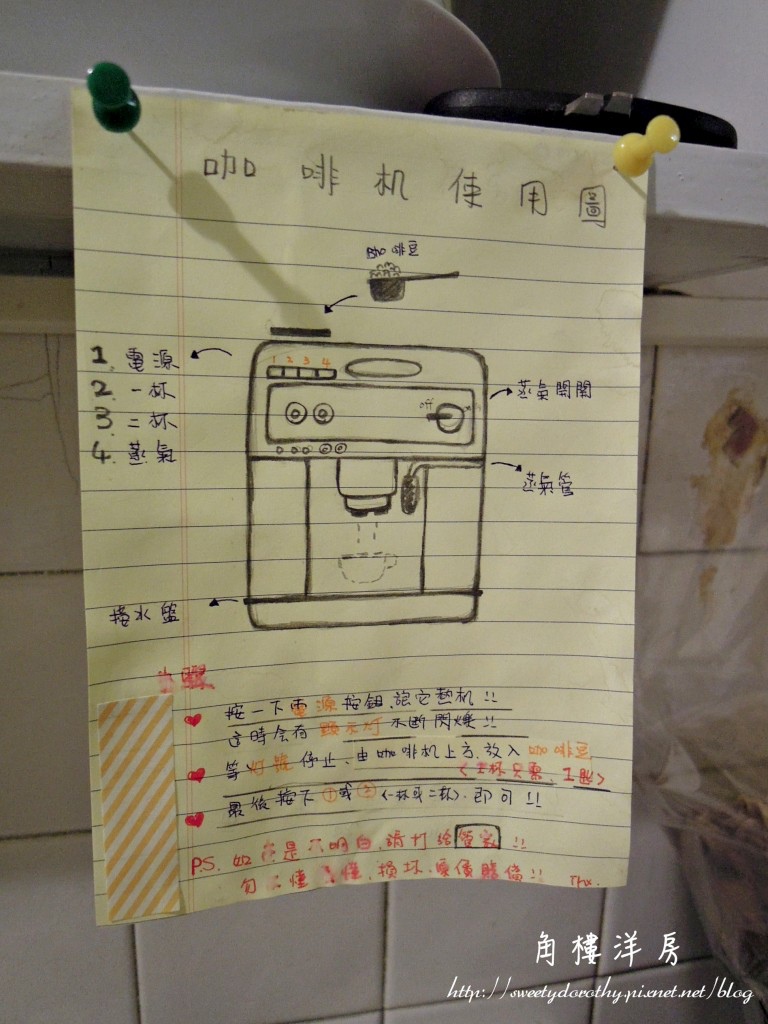 咖啡机使用圖
咖啡豆
1 2 3 4
1. 電源
2. 一杯
3. 二杯
4. 蒸氣
off
蒸氣開關
蒸氣管
接水盤
步驟
按一下電源按鈕、讓它熱机!!
這時会有顯示灯不断閃爍!!
等灯號停止、由咖啡机上方放入咖啡豆
最後按下①或②(一杯或二杯)、即可!!
P.S. 如 是 不明白、請打給管家!!
損坏、要價賠償!! Thx.
角樓洋房
http://sweetydorothy.pixnet.net/blog